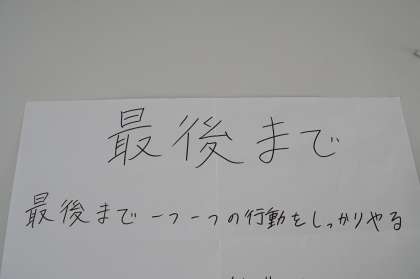 最後まで
最後まで一つ一つの行動をしっかりやる